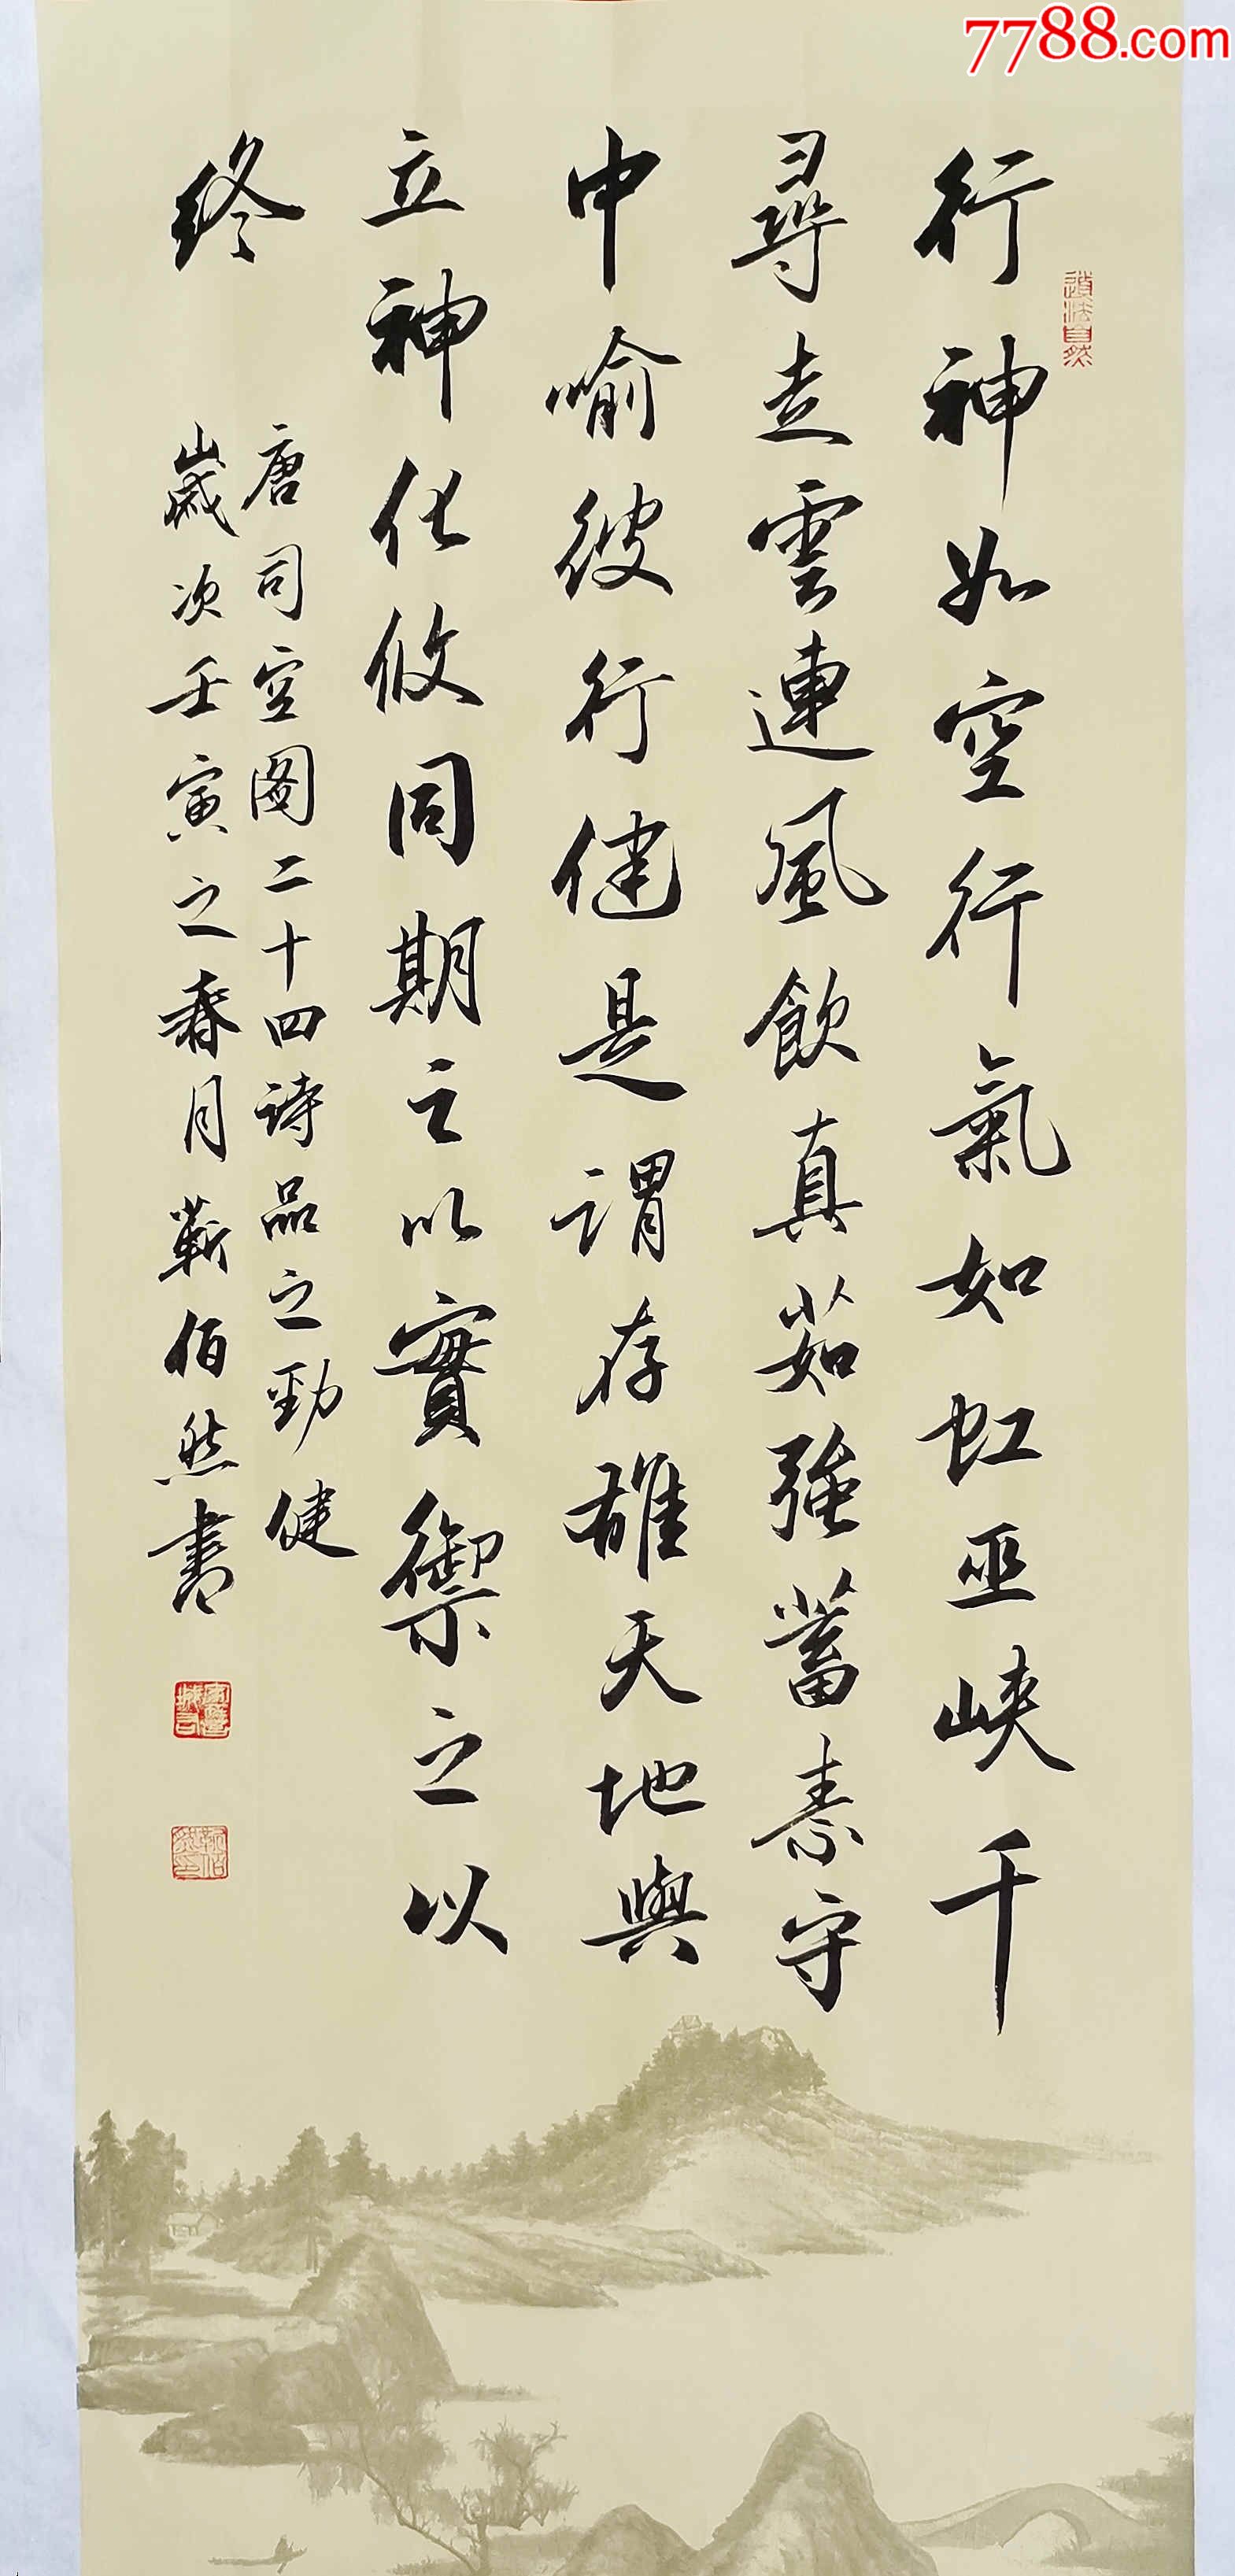 7788.com
道法自然
行神如空行氣如虹巫峽千
尋走雲連風飲真茹強蓄素守
中喻彼行健是謂存雄天地與
立神化攸同期之以實禦之以
終
唐司空图二十四詩品之勁健
歲次壬寅之春月靳佰然書